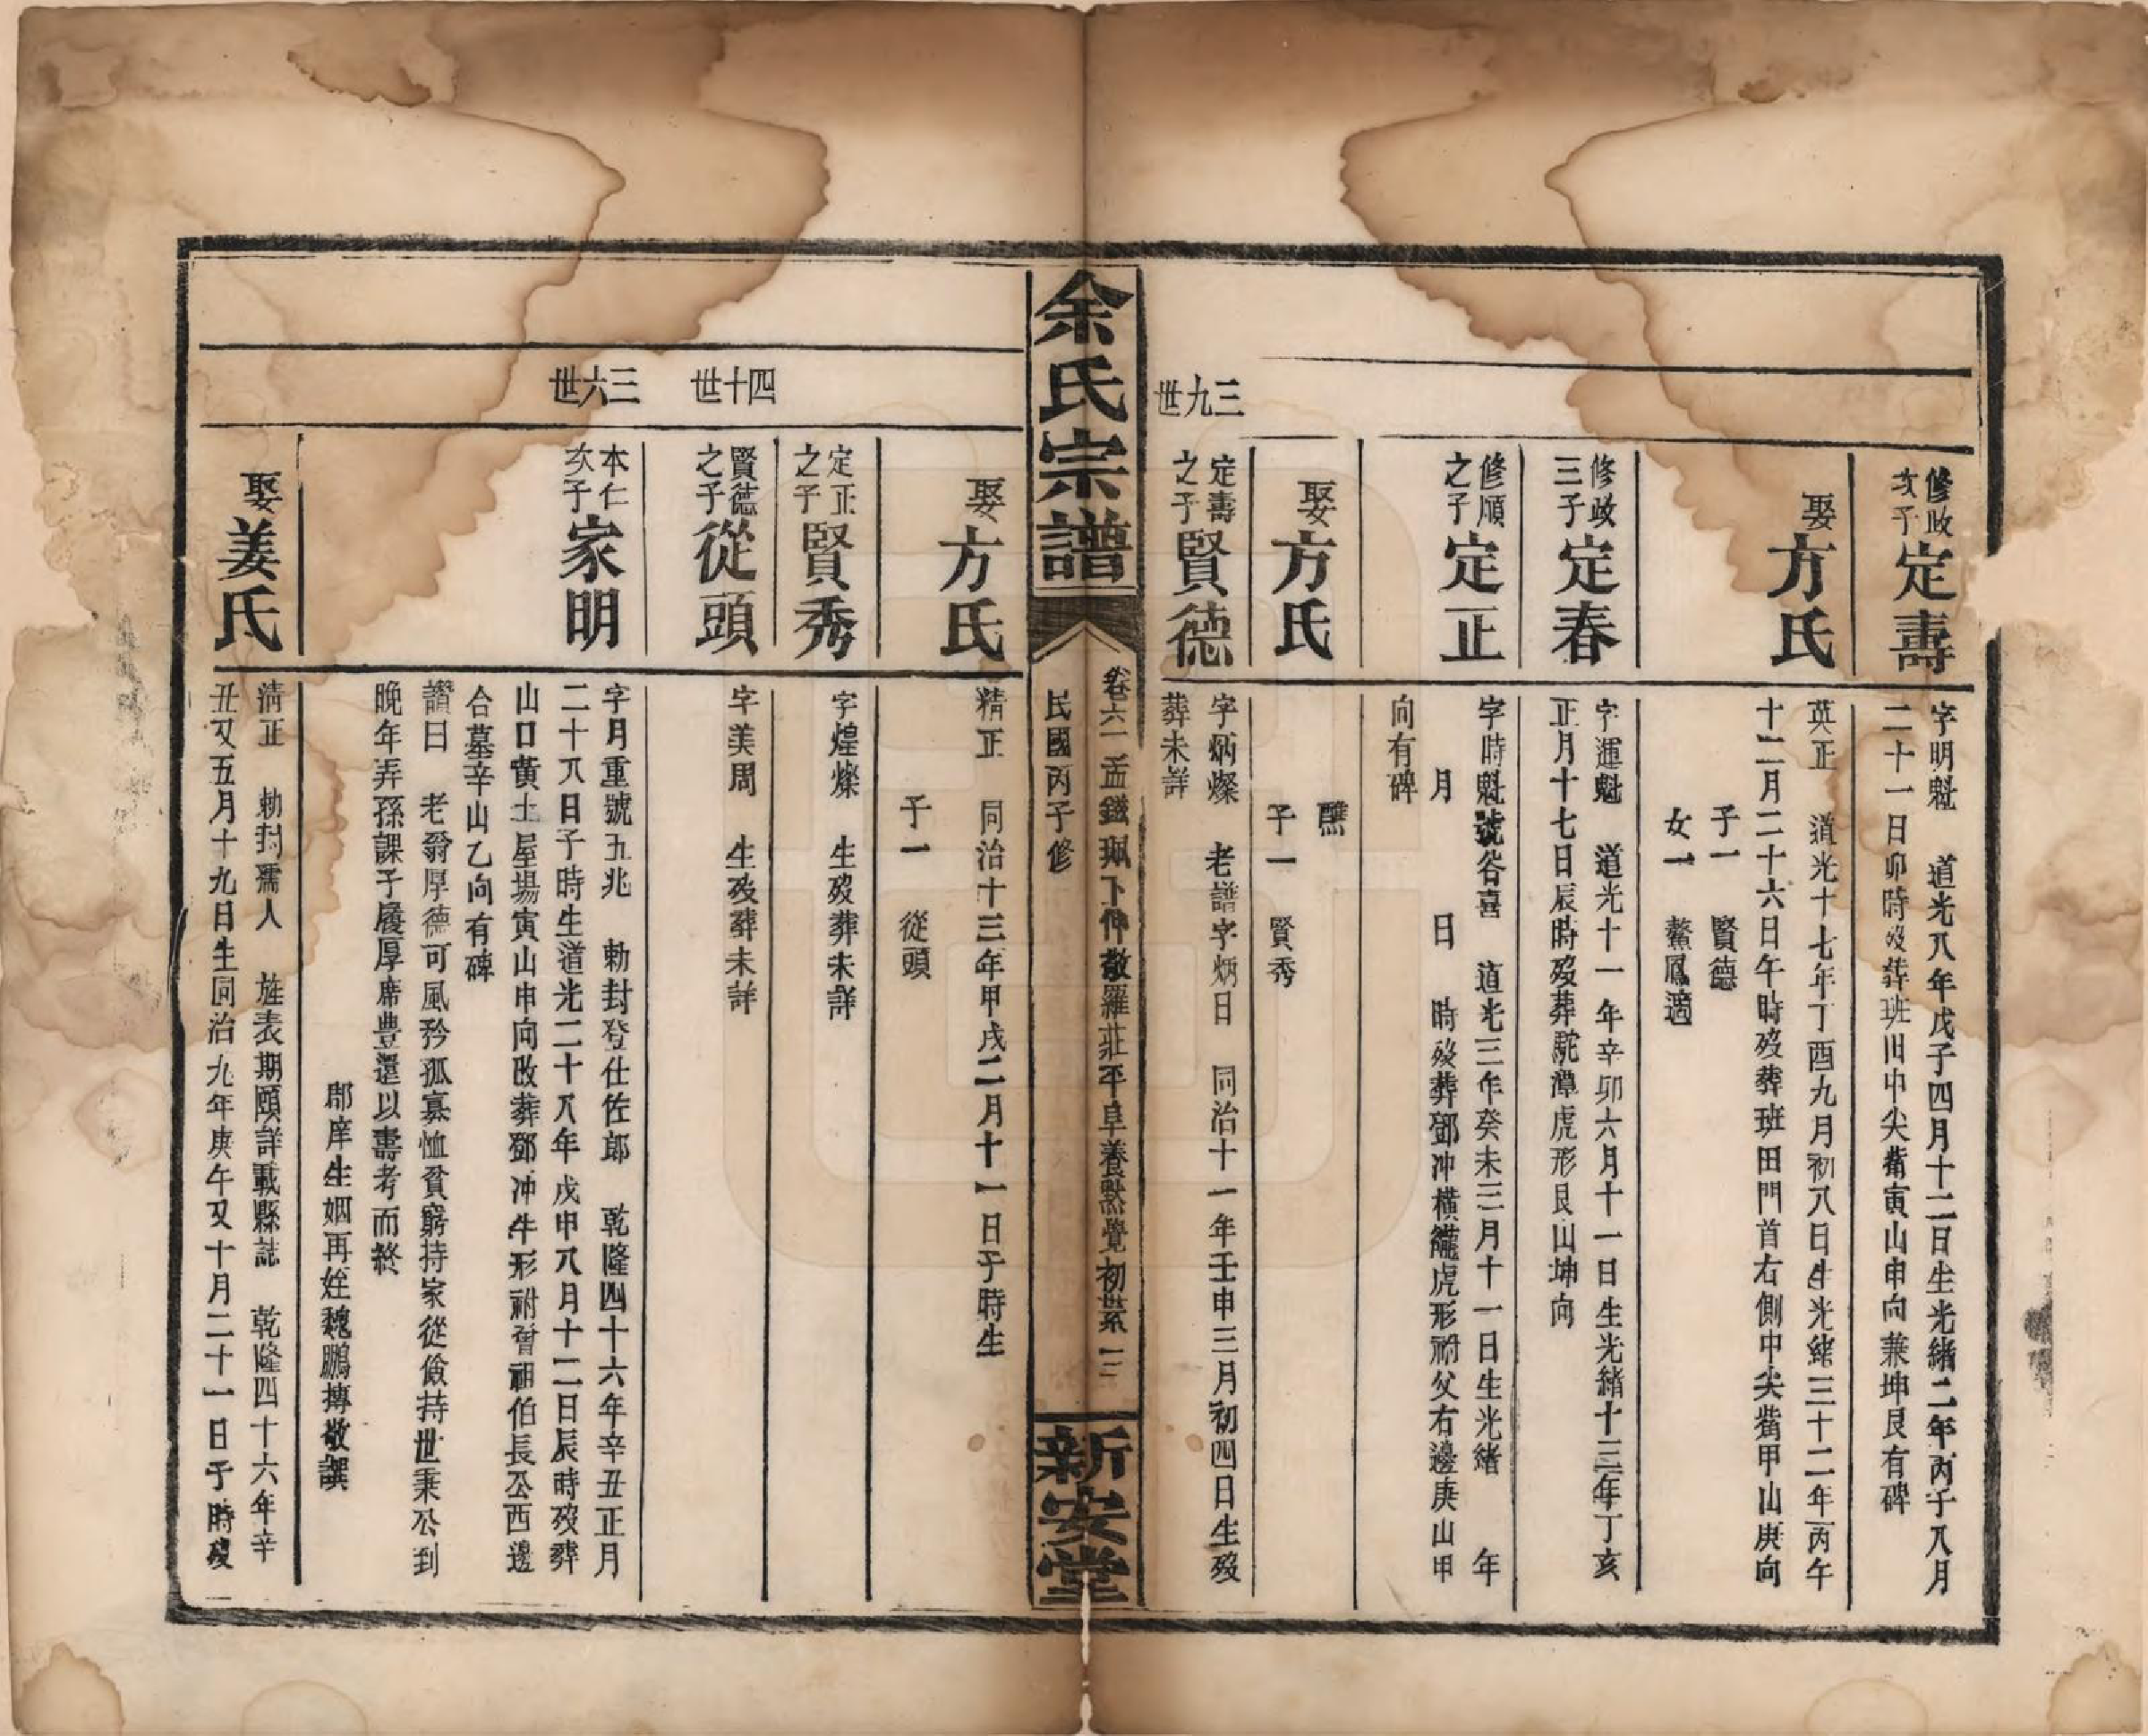 修政次子 定壽
字明魁 道光八年戊子四月十二日生光緒二年丙子八月
二十一日卯時歿葬班田中尖嘴寅山申向兼坤艮有碑
娶方氏
英正 道光十七年丁酉九月初八日生光緒三十二年丙午
十二月二十六日午時歿葬班田門首右側中尖嘴甲山庚向
子一 賢德
女一 鰲鳳適
修政三子 定春
字運魁 道光十一年辛卯六月十一日生光緒十三年丁亥
正月十七日辰時歿葬駝潭虎形艮山坤向
修順之子 定正
字時魁號谷喜 道光三年癸未三月十一日生光緒 年
月 日 時歿葬鄧冲橫虎形祔父右邊庚山甲
向有碑
娶方氏
醮
子一 賢秀
三九世
定壽之子 賢德
字炳燦 老譜字炳日 同治十一年壬申三月初四日生歿
葬未詳
余氏宗譜
卷六一 孟鐵珮下仲敬羅莊平阜養默覺初世系 三
民國丙子修
新安堂
娶方氏
精正 同治十三年甲戌二月十一日子時生
子一 從頭
定正之子 賢秀
字煌燦 生歿葬未詳
四十世
賢德之子 從頭
字美周 生歿葬未詳
三六世
本仁次子 家明
字月重號五兆 勅封登仕佐郎 乾隆四十六年辛丑正月
二十八日子時生道光二十八年戊申八月十二日辰時歿葬
山口黃土屋場寅山申向改葬鄧冲牛形祔曾祖伯長公西邊
合墓辛山乙向有碑
讚曰 老翁厚德可風矜孤寡恤貧窮持家從儉持世秉公到
晚年弄孫課子履厚席豊還以壽考而終
郡庠生姻再姪魏鵬摶敬譔
娶姜氏
淸正 勅封孺人 旌表期頤詳載縣誌 乾隆四十六年辛
丑又五月十九日生同治九年庚午又十月二十一日子時歿